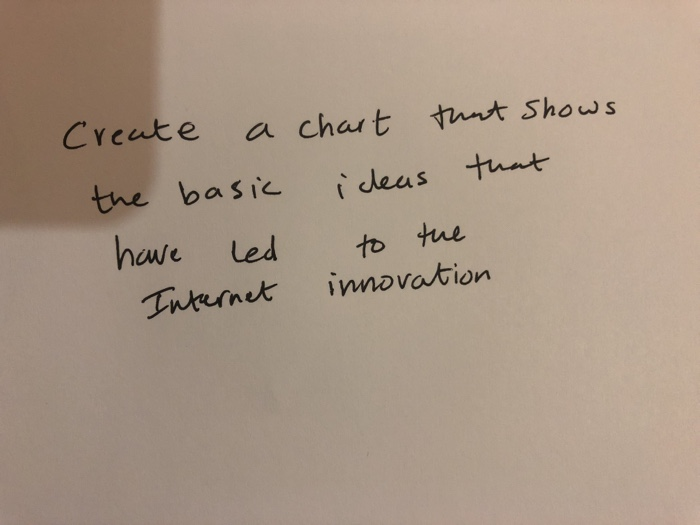 Create a chart that shows
the basic ideas that
have led to the
Internet innovation